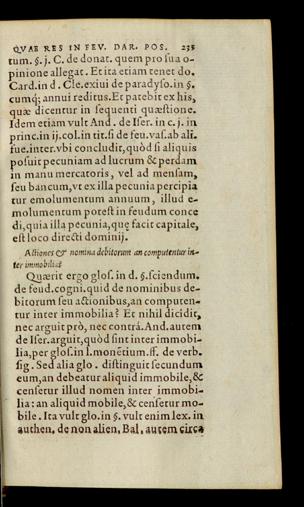 QVAE RES IN FEV. DAR. POS. 235
tum. §. j. C. de donat. quem pro sua o-
pinione allegat. Et ita etiam tenet do.
Card. in d. Cle. exiui de paradyso. in §.
cumq; annui reditus. Et patebit ex his,
quæ dicentur in sequenti quæstione.
Idem etiam vult And. de Iser. in c. j. in
princ. in ij. col. in tit. si de feu. vas. ab ali.
fue. inter. vbi concludit, quòd si aliquis
posuit pecuniam ad lucrum & perdam
in manu mercatoris, vel ad mensam,
seu bancum, vt ex illa pecunia percipia
tur emolumentum annuum, illud e-
molumentum potest in feudum conce
di, quia illa pecunia, quę facit capitale,
est loco directi dominij.
Actiones & nomina debitorum an computentur in-
ter immobilia?
Quærit ergo glos. in d. §. sciendum.
de feud. cogni. quid de nominibus de-
bitorum seu actionibus, an computen-
tur inter immobilia? Et nihil dicidit,
nec arguit prò, nec contrá. And. autem
de Iser. arguit, quòd sint inter immobi-
lia, per glos. in l. monétium. ff. de verb.
sig. Sed alia glo. distinguit secundum
eum, an debeatur aliquid immobile, &
censetur illud nomen inter immobi-
lia: an aliquid mobile, & censetur mo-
bile. Ita vult glo. in §. vult enim lex. in
authen. de non alien. Bal. autem circa